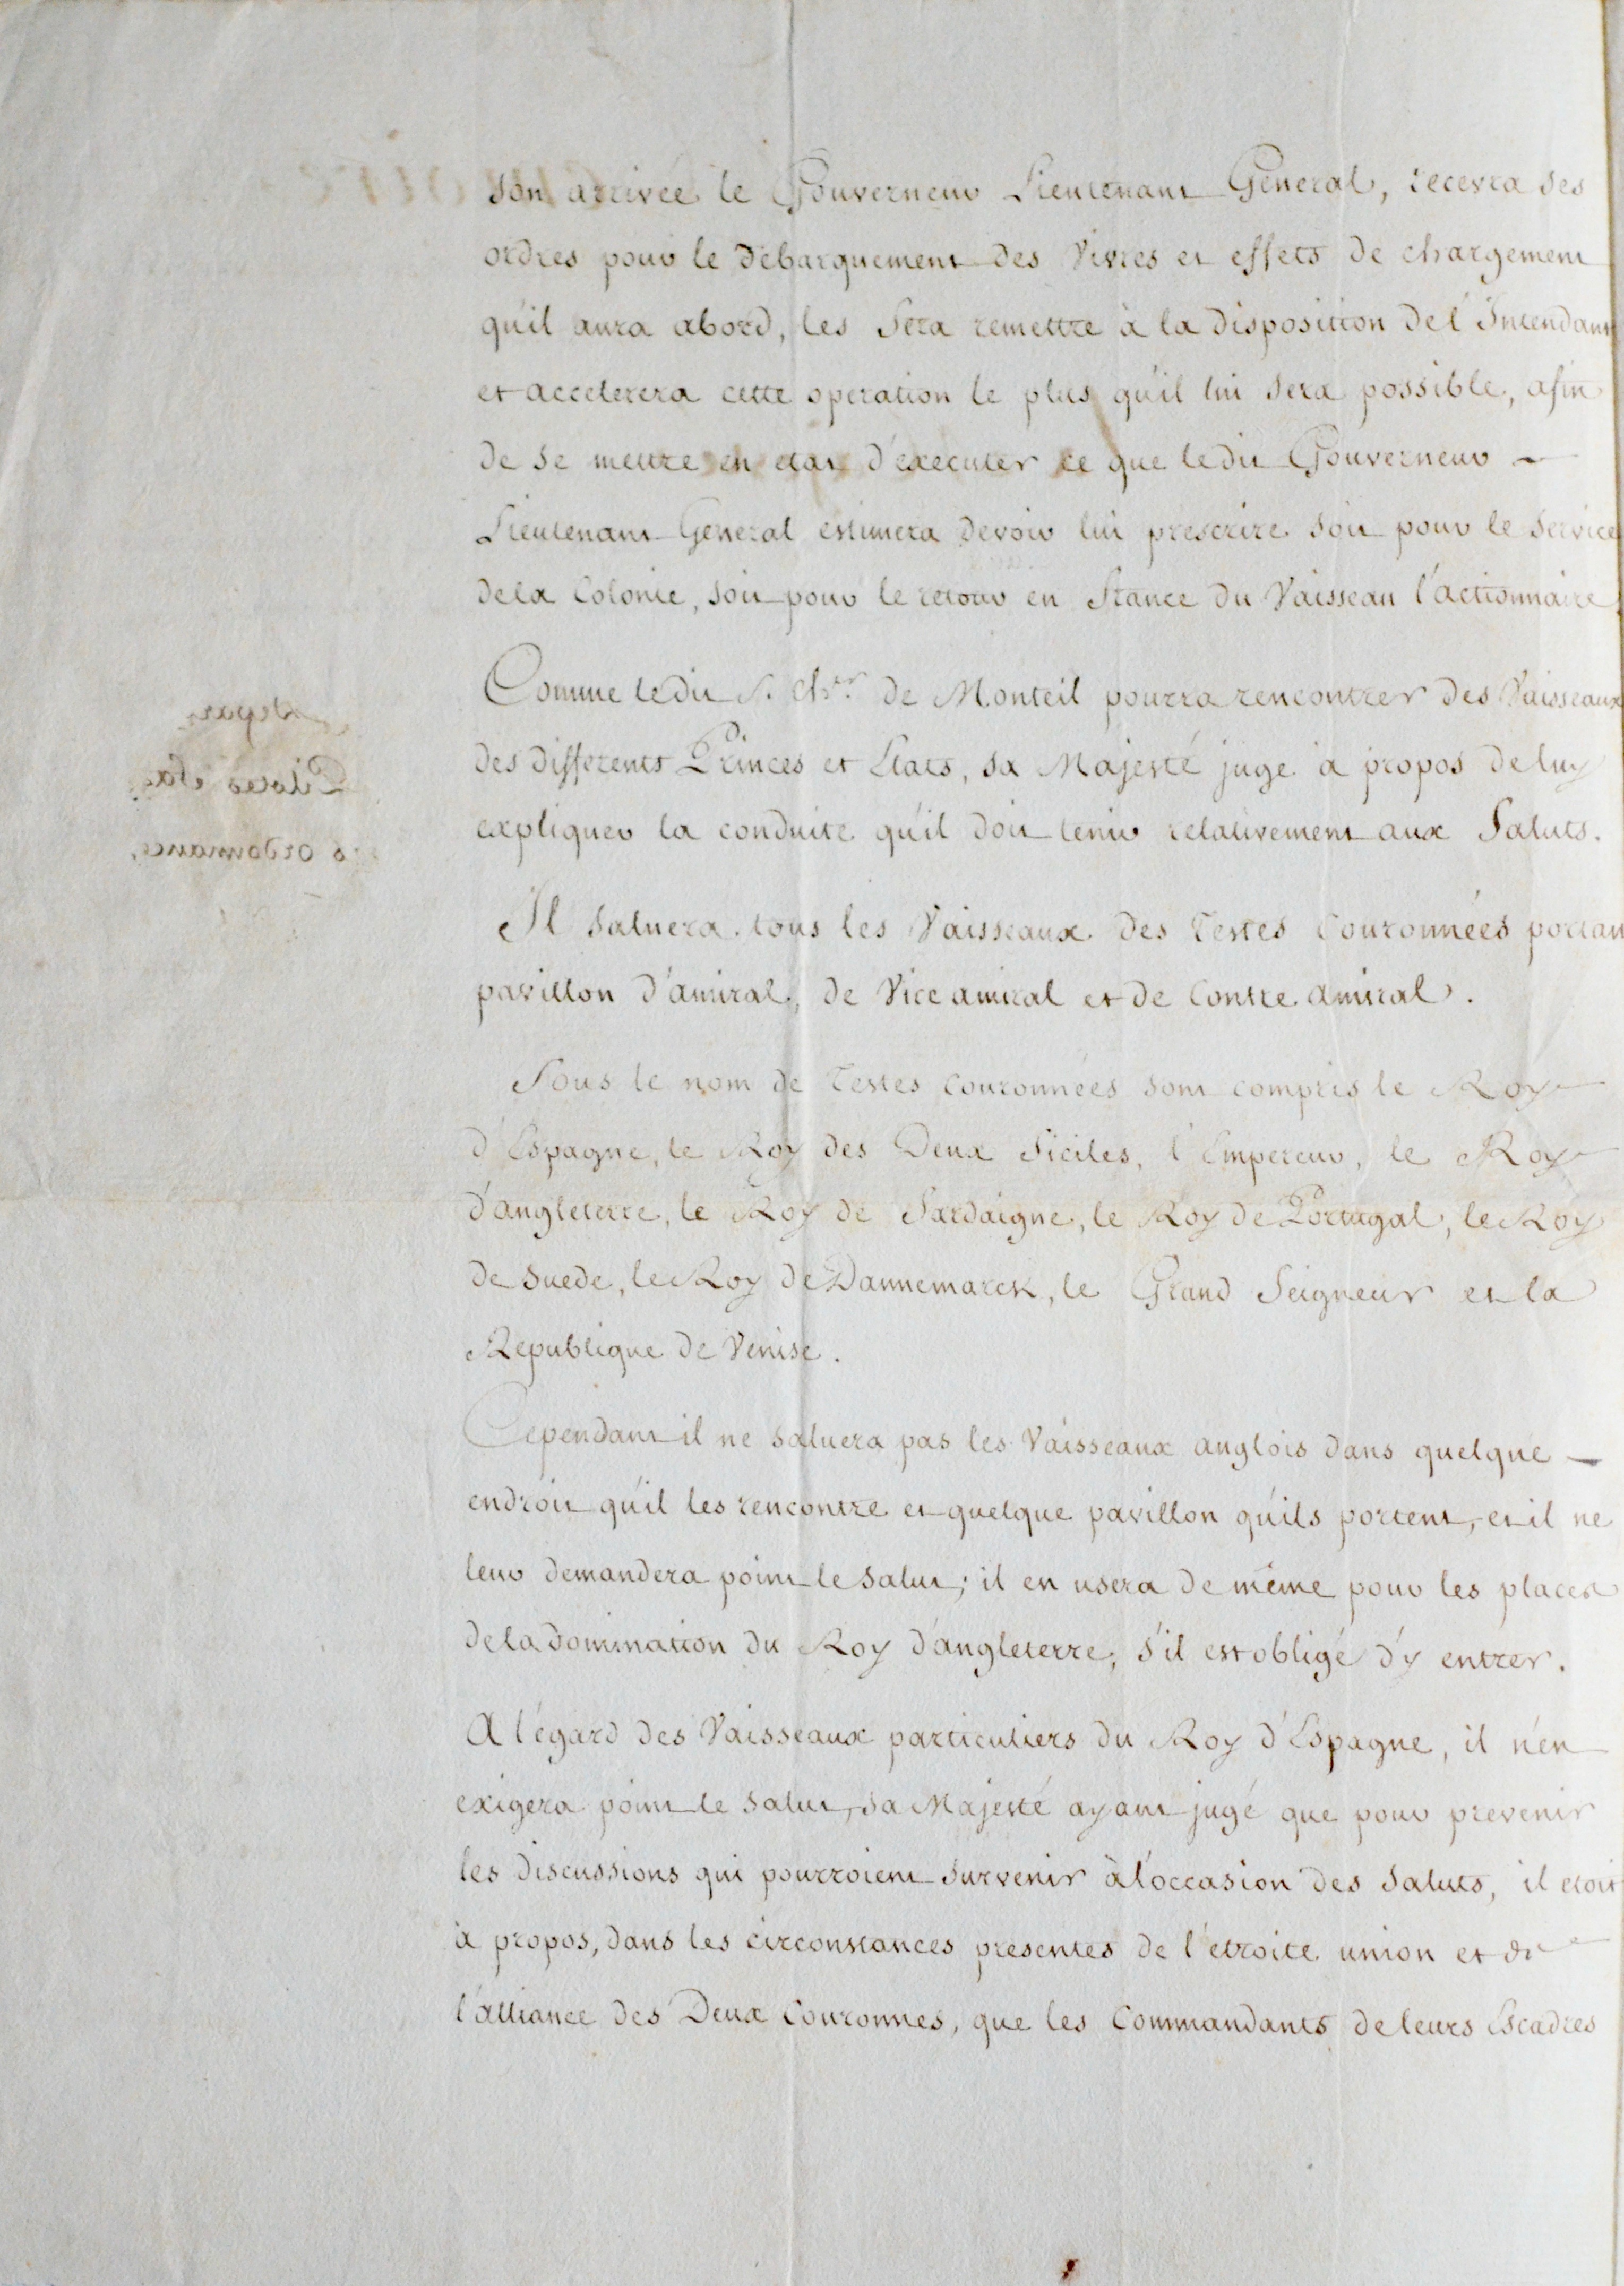 son arrivée le Gouverneur Lieutenant General, recevra ses
ordres pour le debarquement des Vivres et effets de chargement
qu'il aura abord, les fera remettre à la disposition de l'Intendant
et accelerera cette operation le plus qu'il lui sera possible, afin
de se mettre en etat d'executer ce que ledit Gouverneur
Lieutenant General estimera devoir lui prescrire soit pour le service
dela Colonie, soit pour le retour en France du Vaisseau l'actionnaire.
Comme ledit S. Ch.er de Monteil pourra rencontrer des Vaisseaux
des differents Princes et Etats, sa Majesté juge à propos de luy
expliquer la conduite qu'il doit tenir relativement aux Saluts.
Il saluera tous les Vaisseaux des Testes Couronnées portant
pavillon d'amiral, de Vice amiral et de Contre amiral.
Sous le nom de Testes couronnées sont compris le Roy
d'Espagne, le Roy des Deux Siciles, l'Empereur, le Roy
d'angleterre, le Roy de Sardaigne, le Roy de Portugal, le Roy
de Suede, le Roy de Dannemarck, le Grand Seigneur et la
Republique de Venise.
Cependant il ne saluera pas les Vaisseaux anglois dans quelque
endroit qu'il les rencontre et quelque pavillon qu'ils portent, et il ne
leur demandera point le salut; il en usera de même pour les places
dela domination du Roy d'angleterre, s'il est obligé d'y entrer.
A l'égard des Vaisseaux particuliers du Roy d'Espagne, il n'en
exigera point le salut, sa Majesté ayant jugé que pour prevenir
les discussions qui pourroient survenir à l'occasion des saluts, il etoit
à propos, dans les circonstances presentes de l'etroite union et de
l'alliance des Deux Couronnes, que les Commandants de leurs Escadres